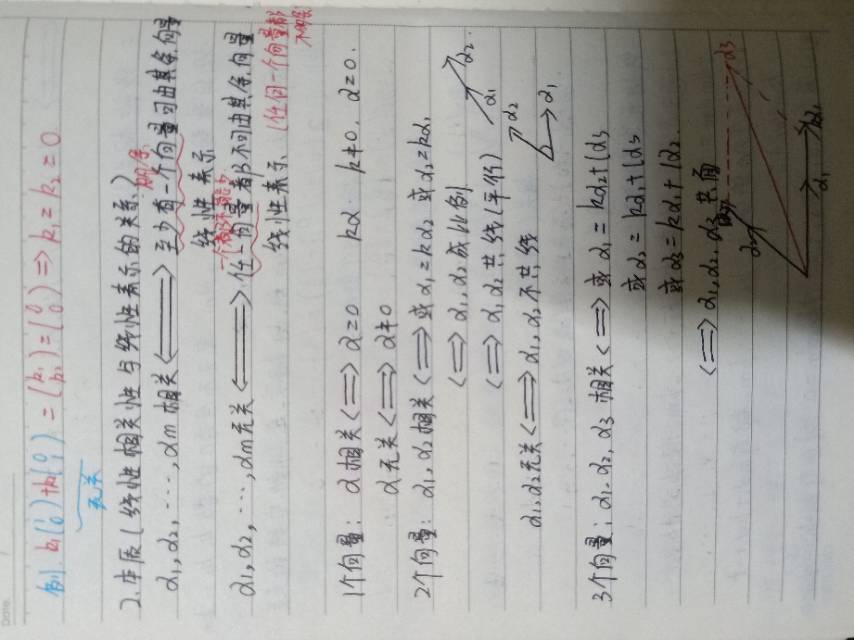 Date.
例. k₁(1 0)+k₂(0 1) = (k₁ k₂) = (0 0) => k₁=k₂=0
无关
2.本质(线性相关性与线性表示的关系)
α₁,α₂,…,αm 相关 <=> 至少有一个向量可由其余向量
线性表示
α₁,α₂,…,αm 无关 <=> 任一向量都不可由其余向量
线性表示 (任何一个向量都
不能
1个向量: α 相关 <=> α=0 kα k≠0. α=0.
α 无关 <=> α≠0
2个向量: α₁,α₂ 相关 <=> 或 α₁=kα₂ 或 α₂=kα₁
<=> α₁,α₂ 成比例
<=> α₁,α₂ 共线(平行)
α₁ α₂
α₁,α₂ 无关 <=> α₁,α₂ 不共线
α₂ α₁
3个向量: α₁,α₂,α₃ 相关 <=> 或 α₁=kα₂+lα₃
或 α₂=kα₁+lα₃
或 α₃=kα₁+lα₂
<=> α₁,α₂,α₃ 共面
α₃
α₂
α₁ kα₁